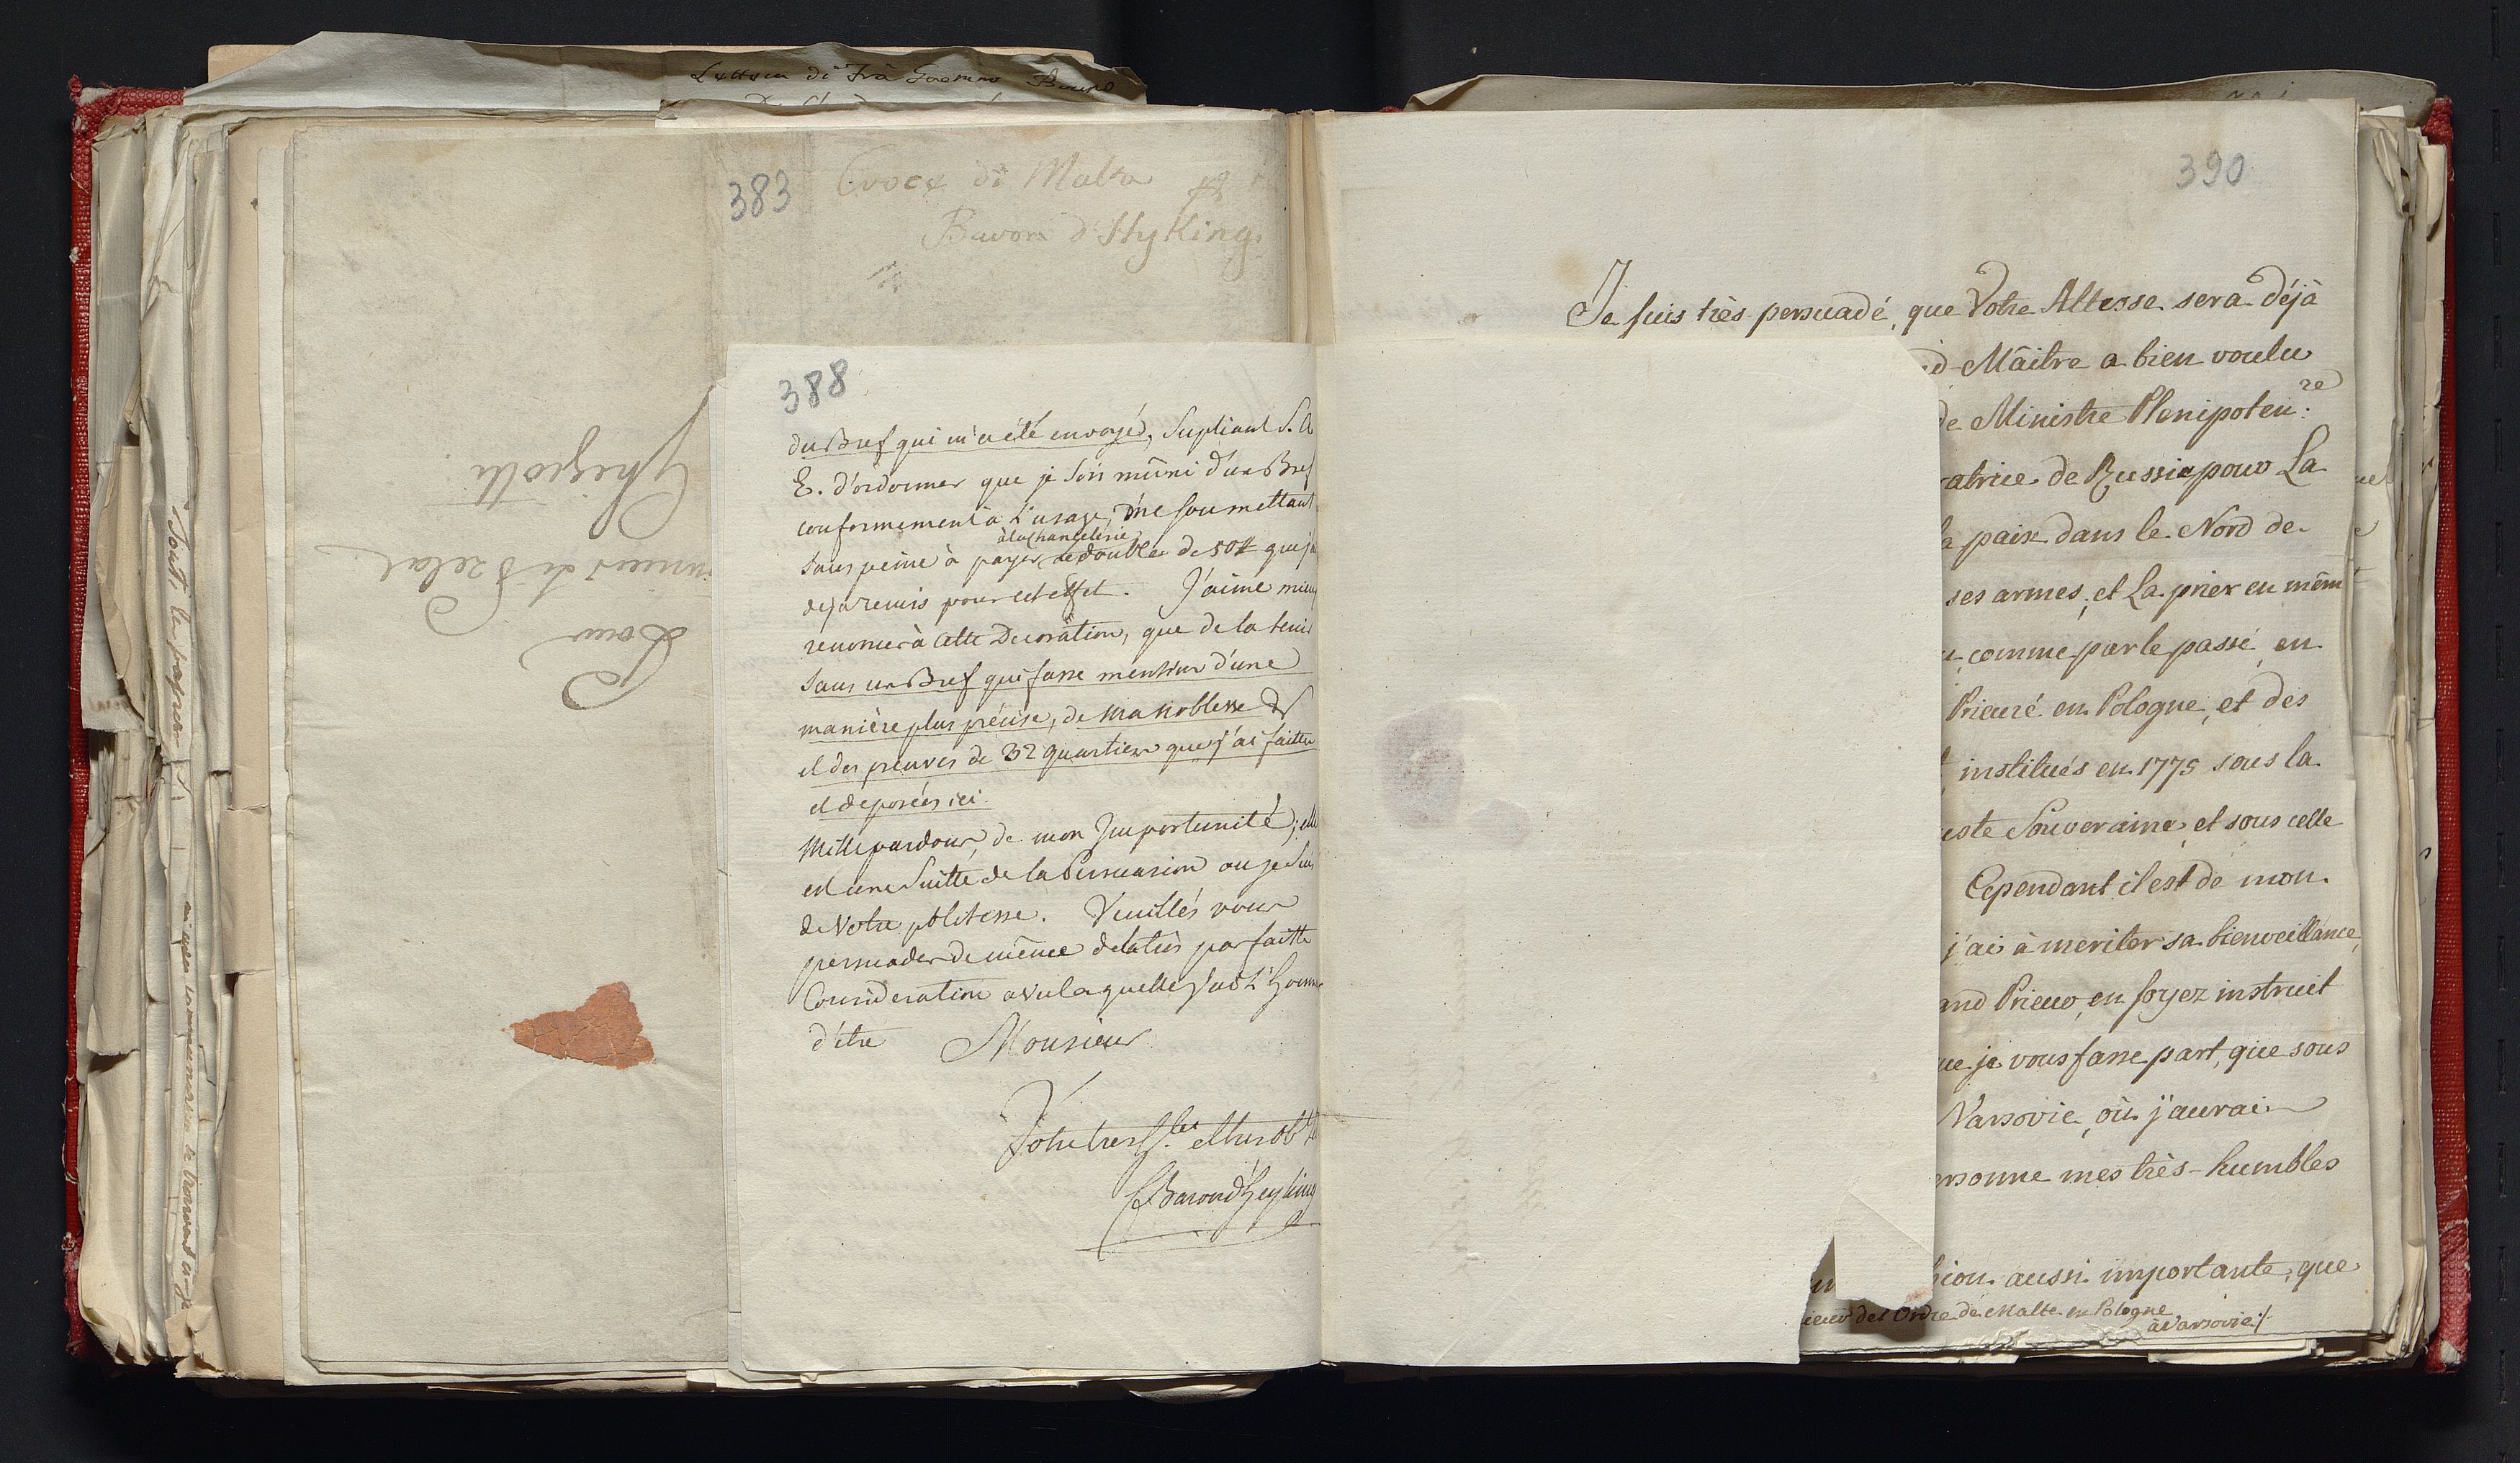 Lettera di Frà
383
Croce di Malta
Barone d'Hyking
Pour
de Prelat
Ghigiotti
388
du Bref qui m'a été envoyé, Supliant S. A
E. d'ordonner que je sois mûni d'un Bref
conformement à l'usage, me soumettant
à la Chancelerie
sans peine à payer le double de 50 # que j'ai
deja remis pour cet effet. J'aime mieux
renoncer à cette Decoration, que de la tenir
sans un Bref qui fasse mention d'une
manière plus précise, de ma noblesse
et des preuves de 32 quartiers que j'ai faittes
et deposées ici.
Mille pardons, de mon Importunité; elle
est une Suitte de la Persuasion ou je Suis
de Votre politesse. Veuillés vous
persuader de même de la très parfaitte
Consideration avec laquelle j'ai L'honneur
d'être Monsieur
Votre très
le Baron d'Heyking
390
Je suis très persuadé, que Votre Altesse sera déjà
d-Mâitre a bien voulu
de Ministre Plenipoten:re
ratrice de Russie pour La
la paix dans le Nord de
ses armes, et La prier en mêm
comme par le passé, en
Prieuré en Pologne, et des
institués en 1775 sous la
uste Souveraine, et sous celle
Cependant il est de mon
j'ai à meriter sa bienveillance,
and Prieur, en soyez instruit
ue je vous fasse part, que sous
Varsovie, où j'aurai
ersonne mes très-humbles
sion aussi importante, que
ieur de l'Ordre de Malte en Pologne
à Varsovie ./.